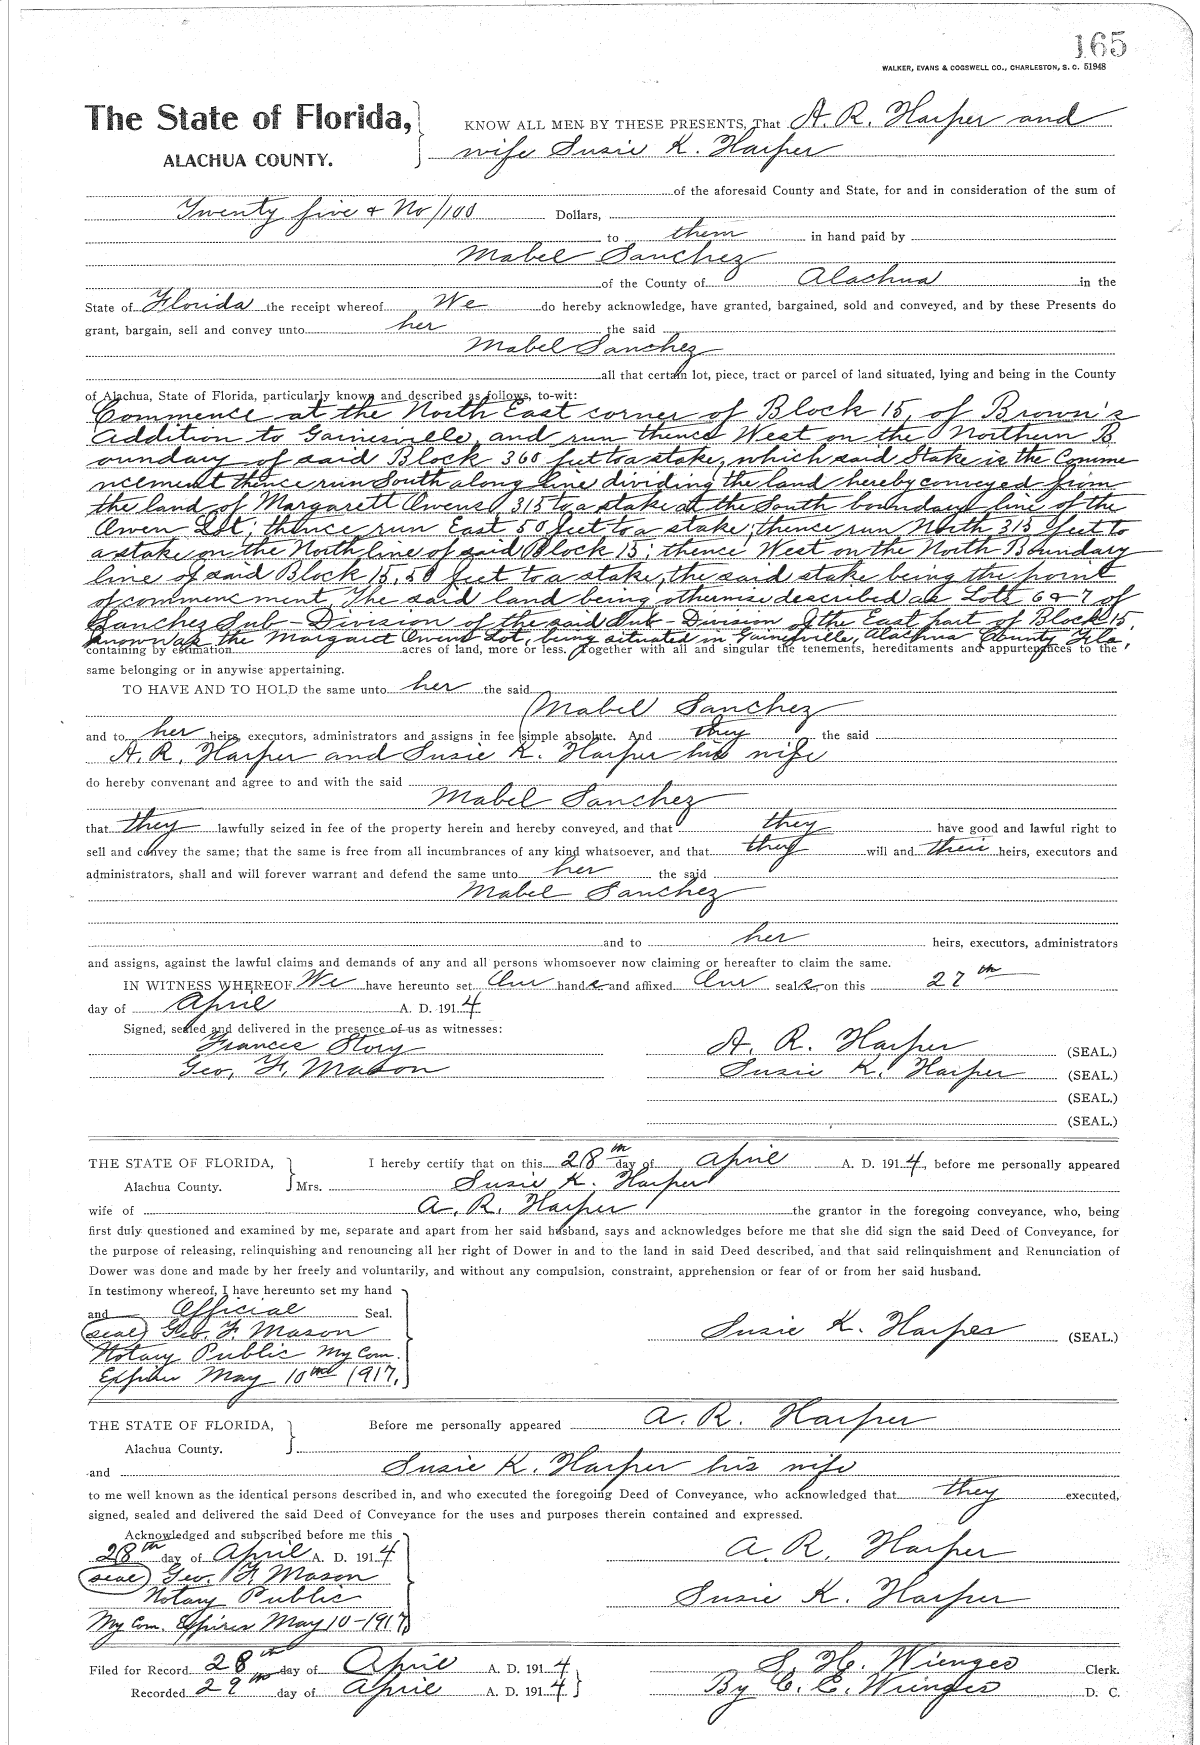 165
WALKER, EVANS & COGSWELL CO., CHARLESTON, S. C. 51948
The State of Florida, KNOW ALL MEN BY THESE PRESENTS, That A. R. Harper and
ALACHUA COUNTY. wife Susie K. Harper
of the aforesaid County and State, for and in consideration of the sum of
Twenty five & No/100 Dollars,
to them in hand paid by
Mabel Sanchez
of the County of Alachua in the
State of Florida the receipt whereof We do hereby acknowledge, have granted, bargained, sold and conveyed, and by these Presents do
grant, bargain, sell and convey unto her the said
Mabel Sanchez
all that certain lot, piece, tract or parcel of land situated, lying and being in the County
of Alachua, State of Florida, particularly known and described as follows, to-wit:
Commence at the North East corner of Block 15, of Brown's
addition to Gainesville, and run thence West on the Northern B
oundary of said Block 360 feet to a stake, which said Stake is the Comme
ncement thence run South along line dividing the land hereby conveyed from
the land of Margarett Owens 315 to a stake at the South boundary line of the
Owen Lot; thence run East 50 feet to a stake; thence run North 315 feet to
a stake on the North line of said Block 15; thence West on the North Boundary
line of said Block 15, 50 feet to a stake, the said stake being the point
of commencment. The said land being otherwise described as Lots 6 & 7 of
Sanchez Sub-Division of the said Sub-Division of the East part of Block 15,
known as the Margaret Owens Lot, being situated in Gainesville, Alachua County Fla,
containing by estimation acres of land, more or less. Together with all and singular the tenements, hereditaments and appurtenances to the
same belonging or in anywise appertaining.
TO HAVE AND TO HOLD the same unto her the said
Mabel Sanchez
and to her heirs, executors, administrators and assigns in fee simple absolute. And they the said
A. R. Harper and Susie K. Harper his wife
do hereby convenant and agree to and with the said
Mabel Sanchez
that they lawfully seized in fee of the property herein and hereby conveyed, and that they have good and lawful right to
sell and convey the same; that the same is free from all incumbrances of any kind whatsoever, and that they will and their heirs, executors and
administrators, shall and will forever warrant and defend the same unto her the said
Mabel Sanchez
and to her heirs, executors, administrators
and assigns, against the lawful claims and demands of any and all persons whomsoever now claiming or hereafter to claim the same.
IN WITNESS WHEREOF We have hereunto set Our hands and affixed Our seals on this 27th
day of April A. D. 1914
Signed, sealed and delivered in the presence of us as witnesses:
Frances Story A. R. Harper (SEAL.)
Geo. F. Mason Susie K. Harper (SEAL.)
(SEAL.)
(SEAL.)
THE STATE OF FLORIDA, I hereby certify that on this 28th day of April A. D. 1914, before me personally appeared
Alachua County. Mrs. Susie K. Harper
wife of A. R. Harper the grantor in the foregoing conveyance, who, being
first duly questioned and examined by me, separate and apart from her said husband, says and acknowledges before me that she did sign the said Deed of Conveyance, for
the purpose of releasing, relinquishing and renouncing all her right of Dower in and to the land in said Deed described, and that said relinquishment and Renunciation of
Dower was done and made by her freely and voluntarily, and without any compulsion, constraint, apprehension or fear of or from her said husband.
In testimony whereof, I have hereunto set my hand
and Official Seal.
(seal) Geo. F. Mason Susie K. Harper (SEAL.)
Notary Public My Com.
Expires May 10th 1917.
THE STATE OF FLORIDA, Before me personally appeared A. R. Harper
Alachua County.
and Susie K. Harper his wife
to me well known as the identical persons described in, and who executed the foregoing Deed of Conveyance, who acknowledged that they executed,
signed, sealed and delivered the said Deed of Conveyance for the uses and purposes therein contained and expressed.
Acknowledged and subscribed before me this
28th day of April A. D. 1914 A. R. Harper
(seal) Geo. F. Mason
Notary Public Susie K. Harper
My Com. Expires May 10-1917
Filed for Record 28th day of April A. D. 1914 S. H. Wienges Clerk.
Recorded 29th day of April A. D. 1914 By C. E. Wienges D. C.